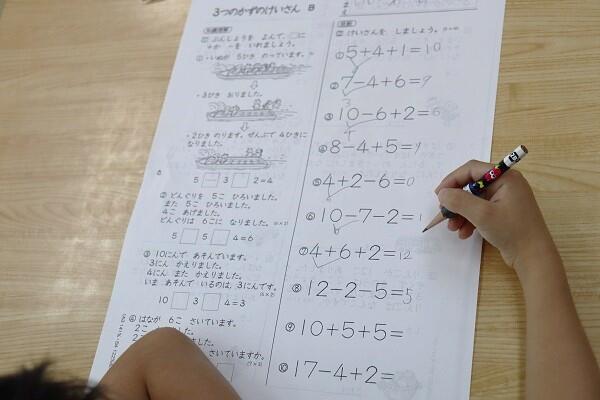 3つのかずのけいさん B
ぶんしょうを よんで、□に
+か -を いれましょう。
① ・いぬが 5ひき のっています。
・3びき おりました。
・2ひき のります。ぜんぶで 4ひきに
なりました。
5 □ 3 □ 2=4
② どんぐりを 5こ ひろいました。
また 5こ ひろいました。
4こ あげました。
どんぐりは 6こに なりました。
5 □ 5 □ 4=6
③ 10にんで あそんでいます。
3にん かえりました。
4にん また かえりました。
いま あそんで いるのは、3にんです。
10 □ 3 □ 4=3
④ はなが 6こ さいています。
2こ
さいていますか。
けいさんを しましょう。
① 5+4+1=10
② 7-4+6=9
3
③ 10-6+2=6
4
④ 8-4+5=9
⑤ 4+2-6=0
⑥ 10-7-2=1
⑦ 4+6+2=12
⑧ 12-2-5=5
⑨ 10+5+5=
⑩ 17-4+2=